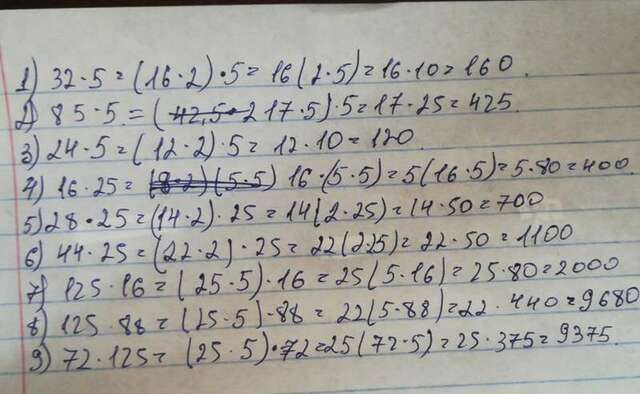 1) 32·5=(16·2)·5=16(2·5)=16·10=160.
2) 85·5=(42,5·2 17·5)·5=17·25=425
3) 24·5=(12·2)·5=12·10=120.
4) 16·25=(8·2)(5·5) 16·(5·5)=5(16·5)=5·80=400.
5) 28·25=(14·2)·25=14(2·25)=14·50=700
6) 44·25=(22·2)·25=22(225)=22·50=1100
7) 125·16=(25·5)·16=25(5·16)=25·80=2000
8) 125·88=(25·5)·88=22(5·88)=22·440=9680
9) 72·125=(25·5)·72=25(72·5)=25·375=9375.